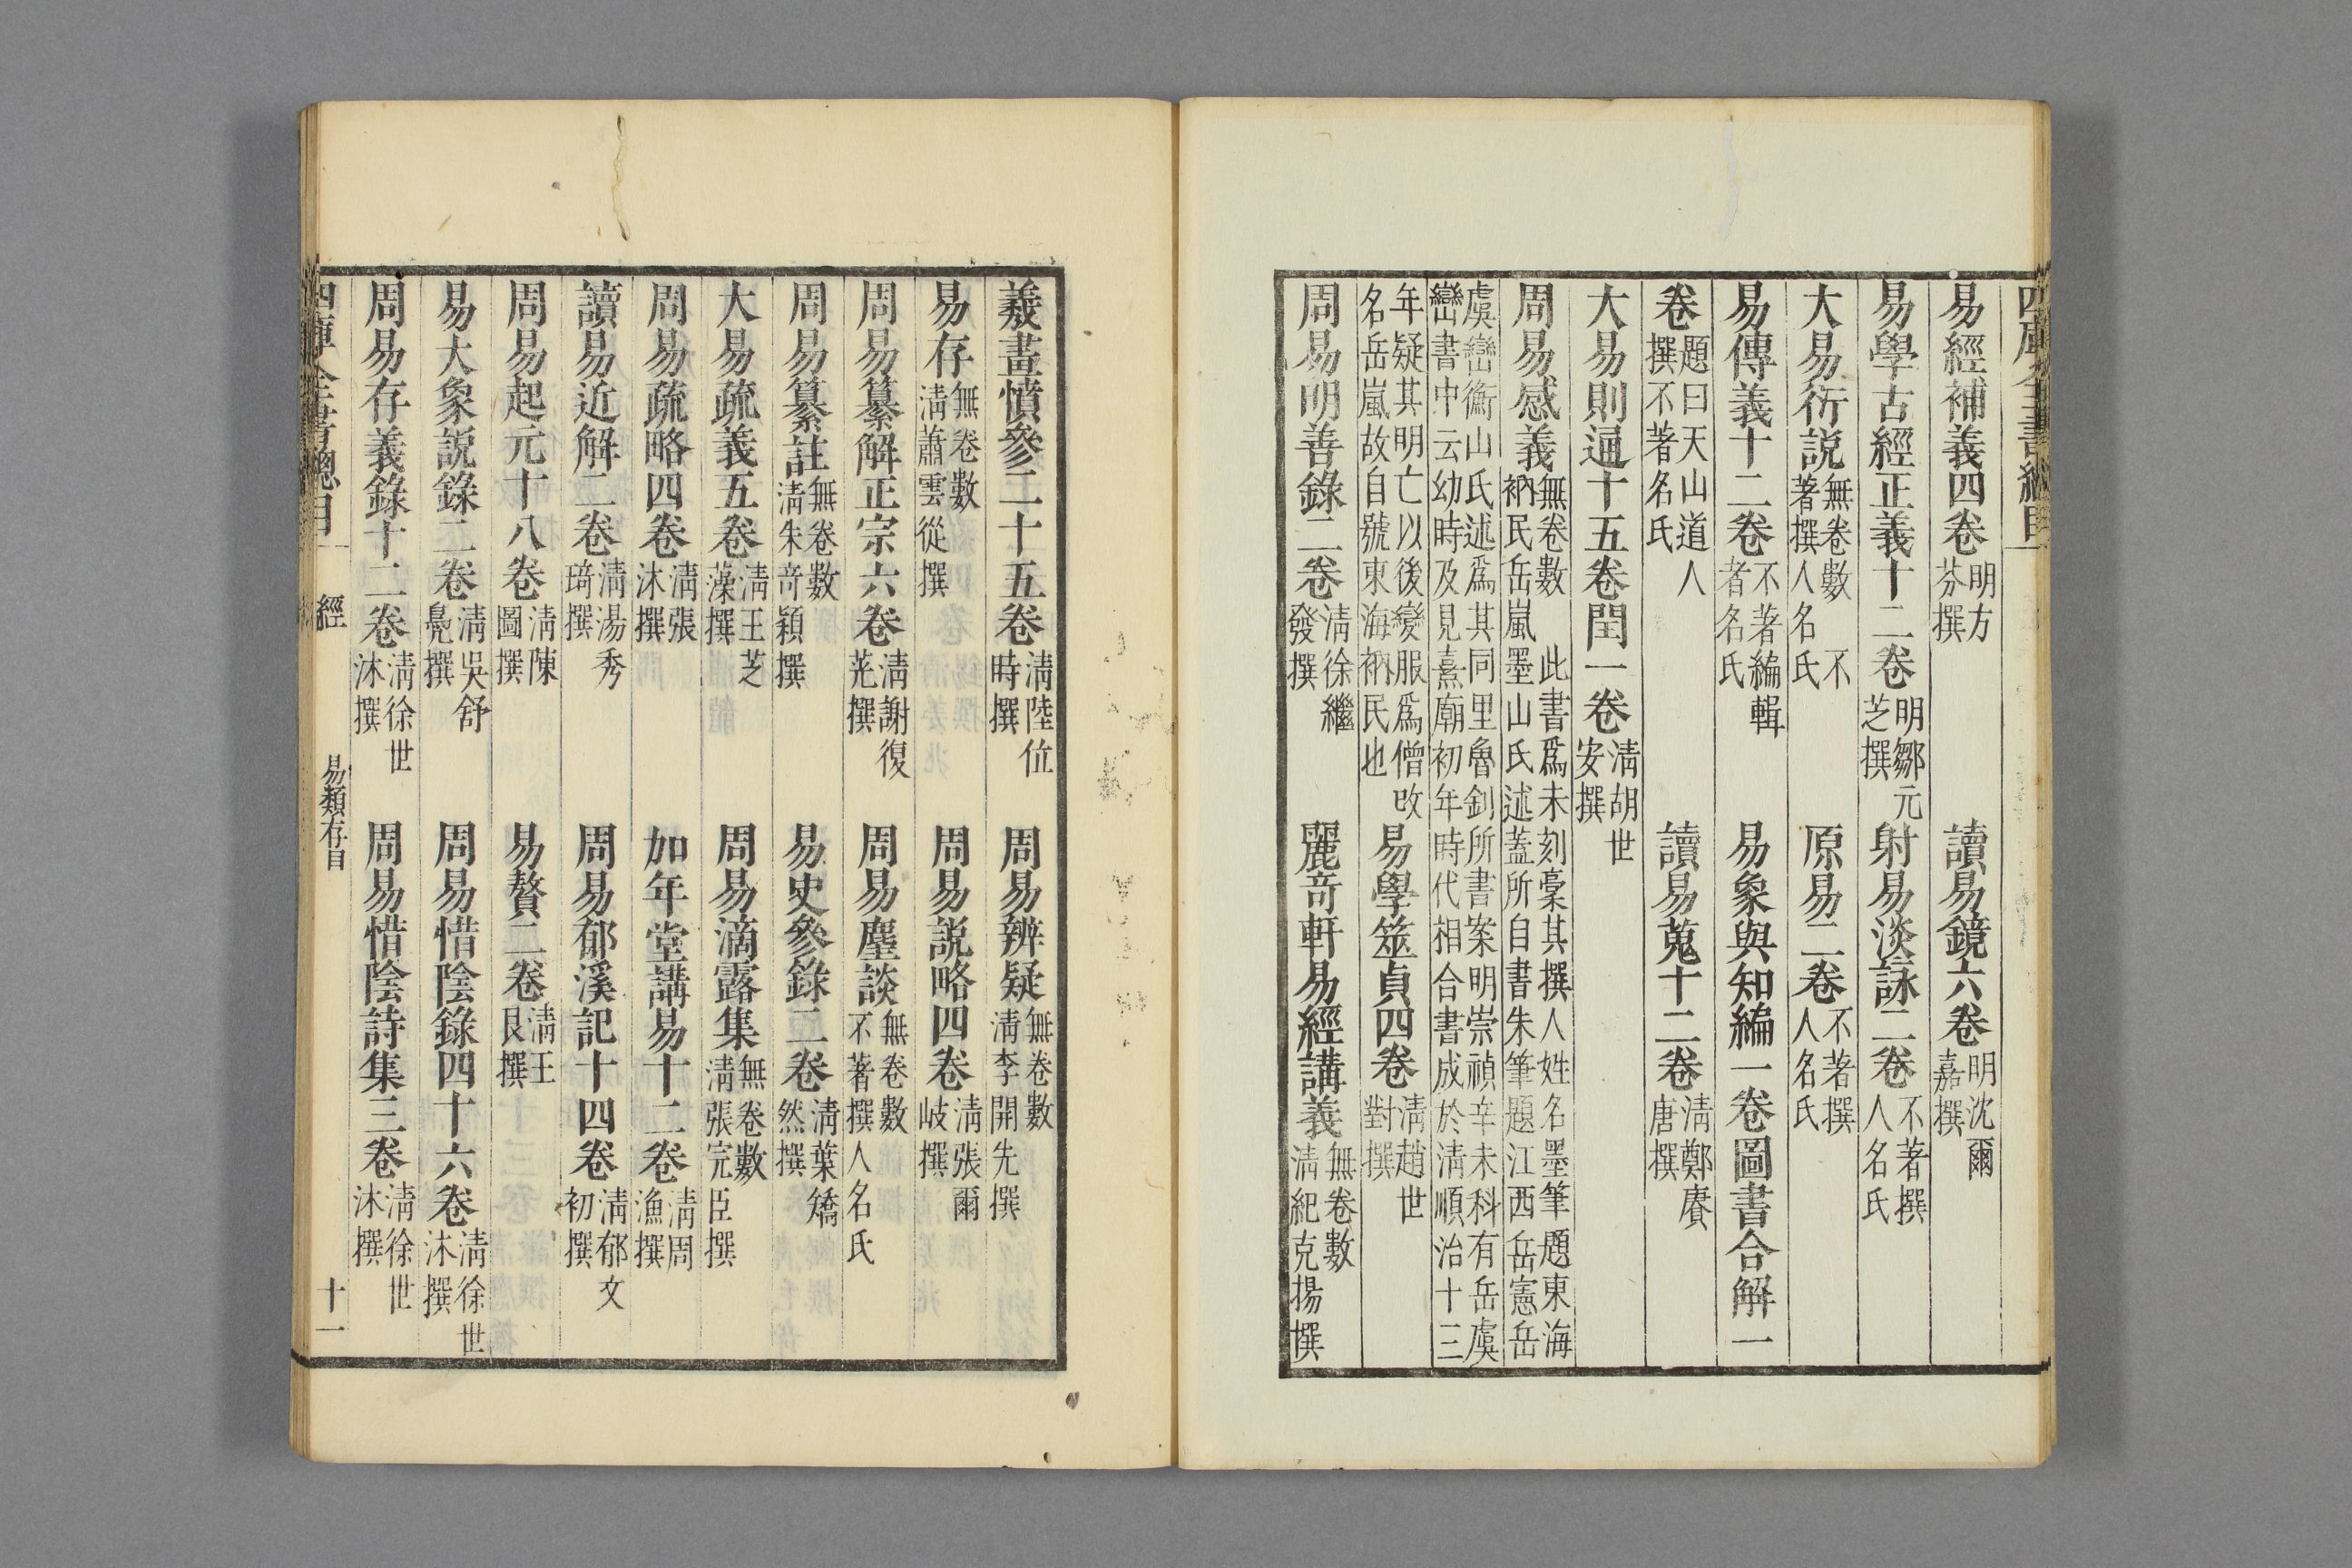 易經補義四卷 明方芬撰 讀易鏡六卷 明沈爾嘉撰
易學古經正義十二卷 明鄒元芝撰 射易淡詠二卷 不著撰人名氏
大易衍説 無卷數不著撰人名氏 原易二卷 不著撰人名氏
易傳義十二卷 不著編輯者名氏 易象與知編一卷圖書合解一
卷 題曰天山道人撰不著名氏 讀易蒐十二卷 清鄭賡唐撰
大易則通十五卷閏一卷 清胡世安撰
周易感義 無卷數 此書爲未刻稾其撰人姓名墨筆題東海
衲民岳嵐墨山氏述蓋所自書朱筆題江西岳憲岳
虞巒衡山氏述爲其同里魯釗所書案明崇禎辛未科有岳虞
巒書中云幼時及見熹廟初年時代相合書成於清順治十三
年疑其明亡以後變服爲僧改
名岳嵐故自號東海衲民也 易學筮貞四卷 清趙世對撰
周易明善錄二卷 清徐繼發撰 麗奇軒易經講義 無卷數清紀克揚撰
羲畫憤參二十五卷 清陸位時撰 周易辨疑 無卷數清李開先撰
易存 無卷數清蕭雲從撰 周易説略四卷 清張爾岐撰
周易纂解正宗六卷 清謝復茫撰 周易塵談 無卷數不著撰人名氏
周易纂註 無卷數清朱奇穎撰 易史參錄二卷 清葉矯然撰
大易疏義五卷 清王芝藻撰 周易滴露集 無卷數清張完臣撰
周易疏略四卷 清張沐撰 加年堂講易十二卷 清周漁撰
讀易近解二卷 清湯秀琦撰 周易郁溪記十四卷 清郁文初撰
周易起元十八卷 清陳圖撰 易贅二卷 清王艮撰
易大象説錄二卷 清吳舒鳧撰 周易惜陰錄四十六卷 清徐世沐撰
周易存義錄十二卷 清徐世沐撰 周易惜陰詩集三卷 清徐世沐撰
四庫全書總目 經 易類存目 十一